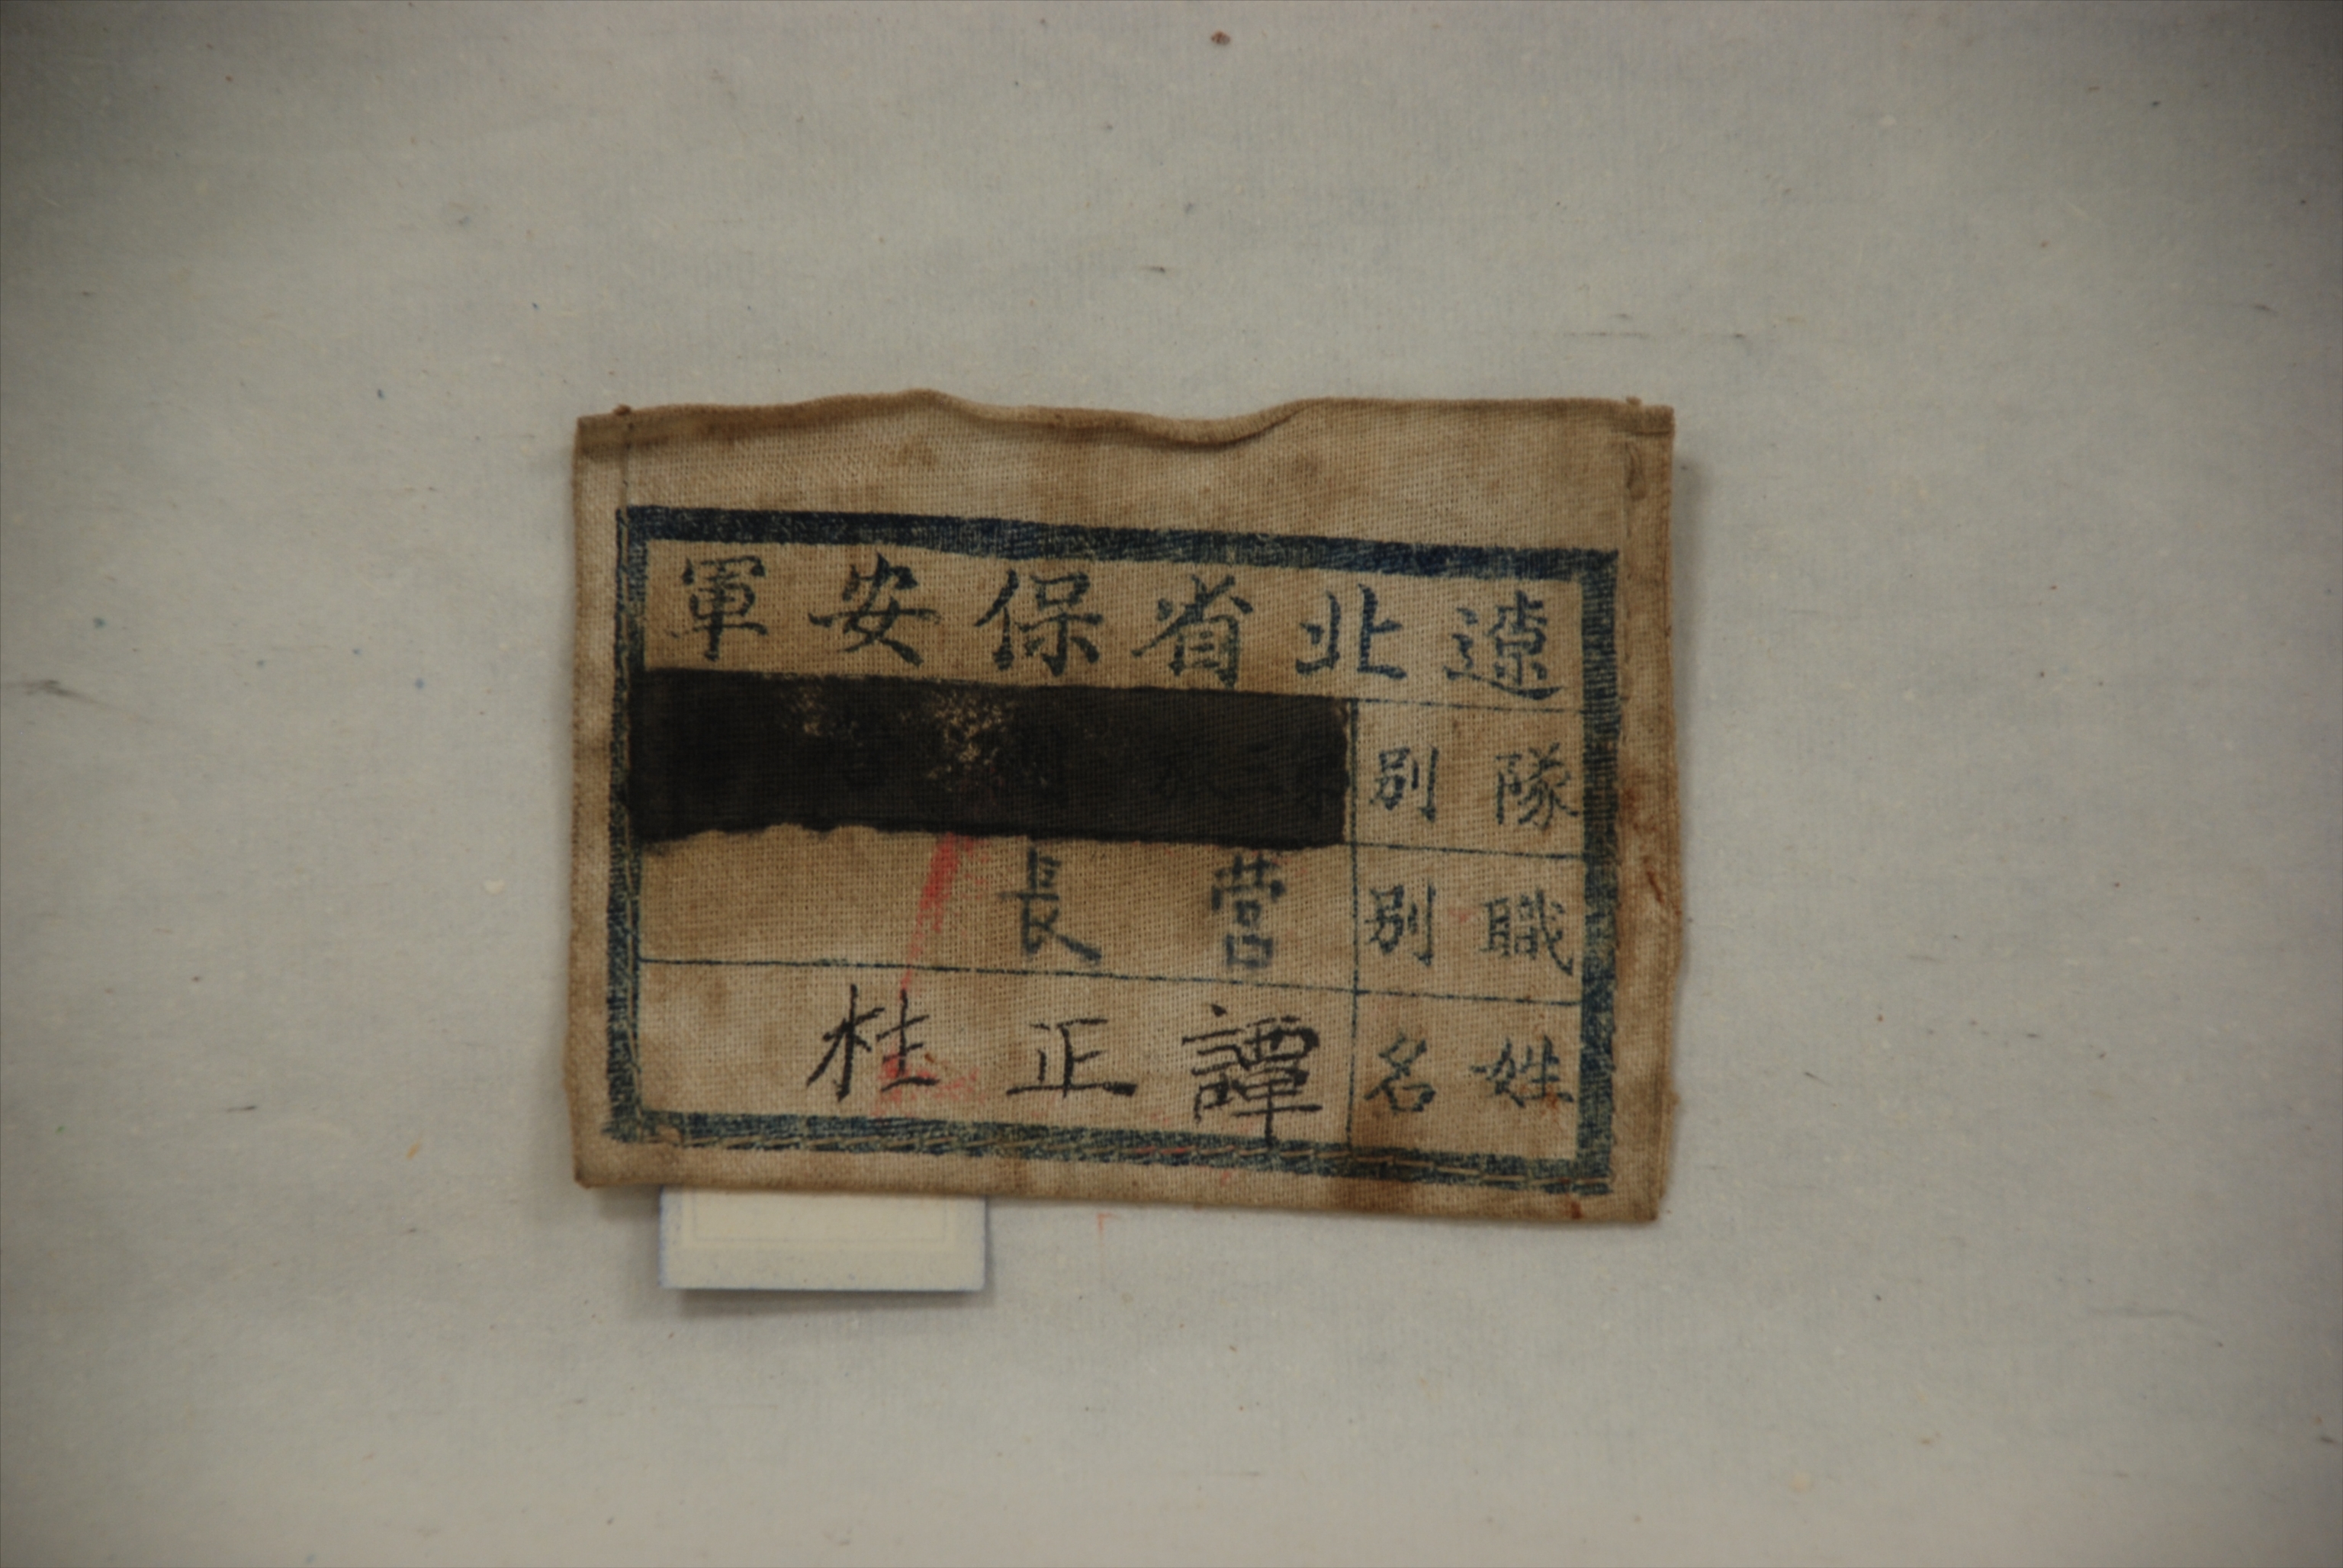 遼北省保安軍
隊別
職別 營長
姓名 譚正桂